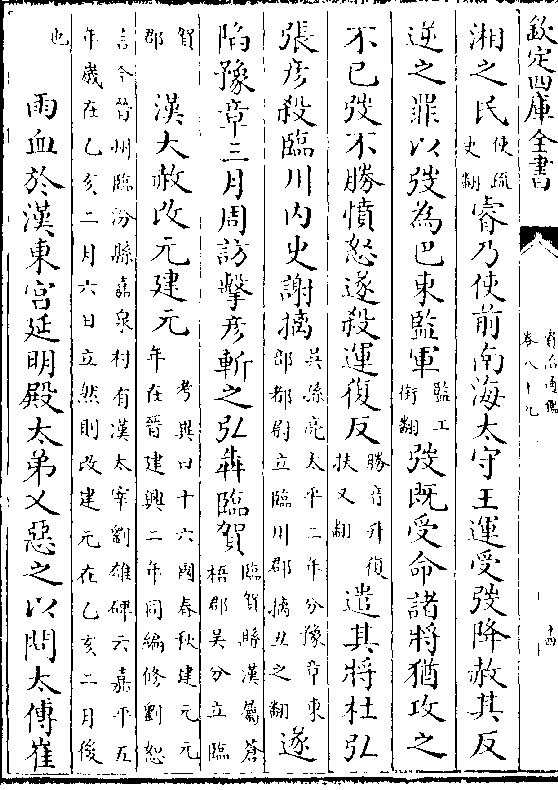 欽定四庫全書
資治通鑑
卷八十九
十四
湘之民使疏吏翻睿乃使前南海太守王運受弢降赦其反
逆之罪以弢為巴東監軍監工銜翻弢既受命諸將猶攻之
不已弢不勝憤怒遂殺運復反勝音升復扶又翻遣其將杜弘
張彦殺臨川内史謝摛吳孫亮太平二年分豫章東部都尉立臨川郡摛丑之翻遂
陷豫章三月周訪擊彦斬之弘犇臨賀臨賀縣漢屬蒼梧郡吳分立臨
賀郡漢大赦改元建元考異曰十六國春秋建元元年在晉建興二年同編修劉恕
言今晉州臨汾縣嘉泉村有漢太宰劉雄碑云嘉平五年歲在乙亥二月六日立然則改建元在乙亥二月後
也雨血於漢東宫延明殿太弟乂惡之以問太傅崔